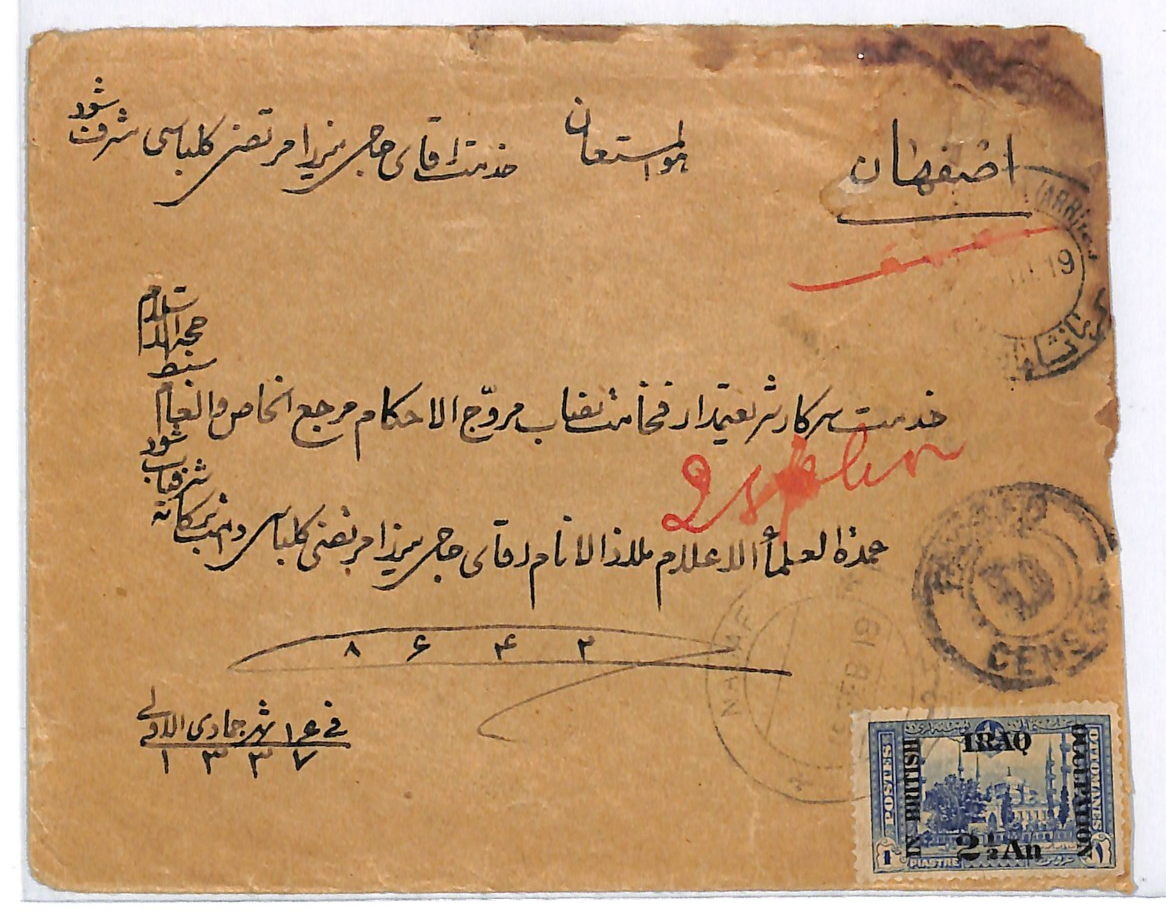 اصفهان
هو المستعان
خدمت اقای حاجی میرزا مرتضی کلباسی مشرف شود
خدمت سرکار شریعتمدار فخامت نصاب مروّج الاحکام مرجع الخاص والعام
حجة الاسلام
عمدة العلماء الاعلام ملاذ الانام اقای حاجی میرزا مرتضی کلباسی
شرفیاب شود
2 Isphan
۸ ۶ ۴ ۲
فی ۱۶ شهر جمادی الاولی
۱۳۳۷
(ARRIVÉE)
19
PASSED
CENSOR
NAJAF
FEB 19
POSTES
OTTOMANES
IRAQ
IN BRITISH
OCCUPATION
2½ An
1
PIASTRE
١